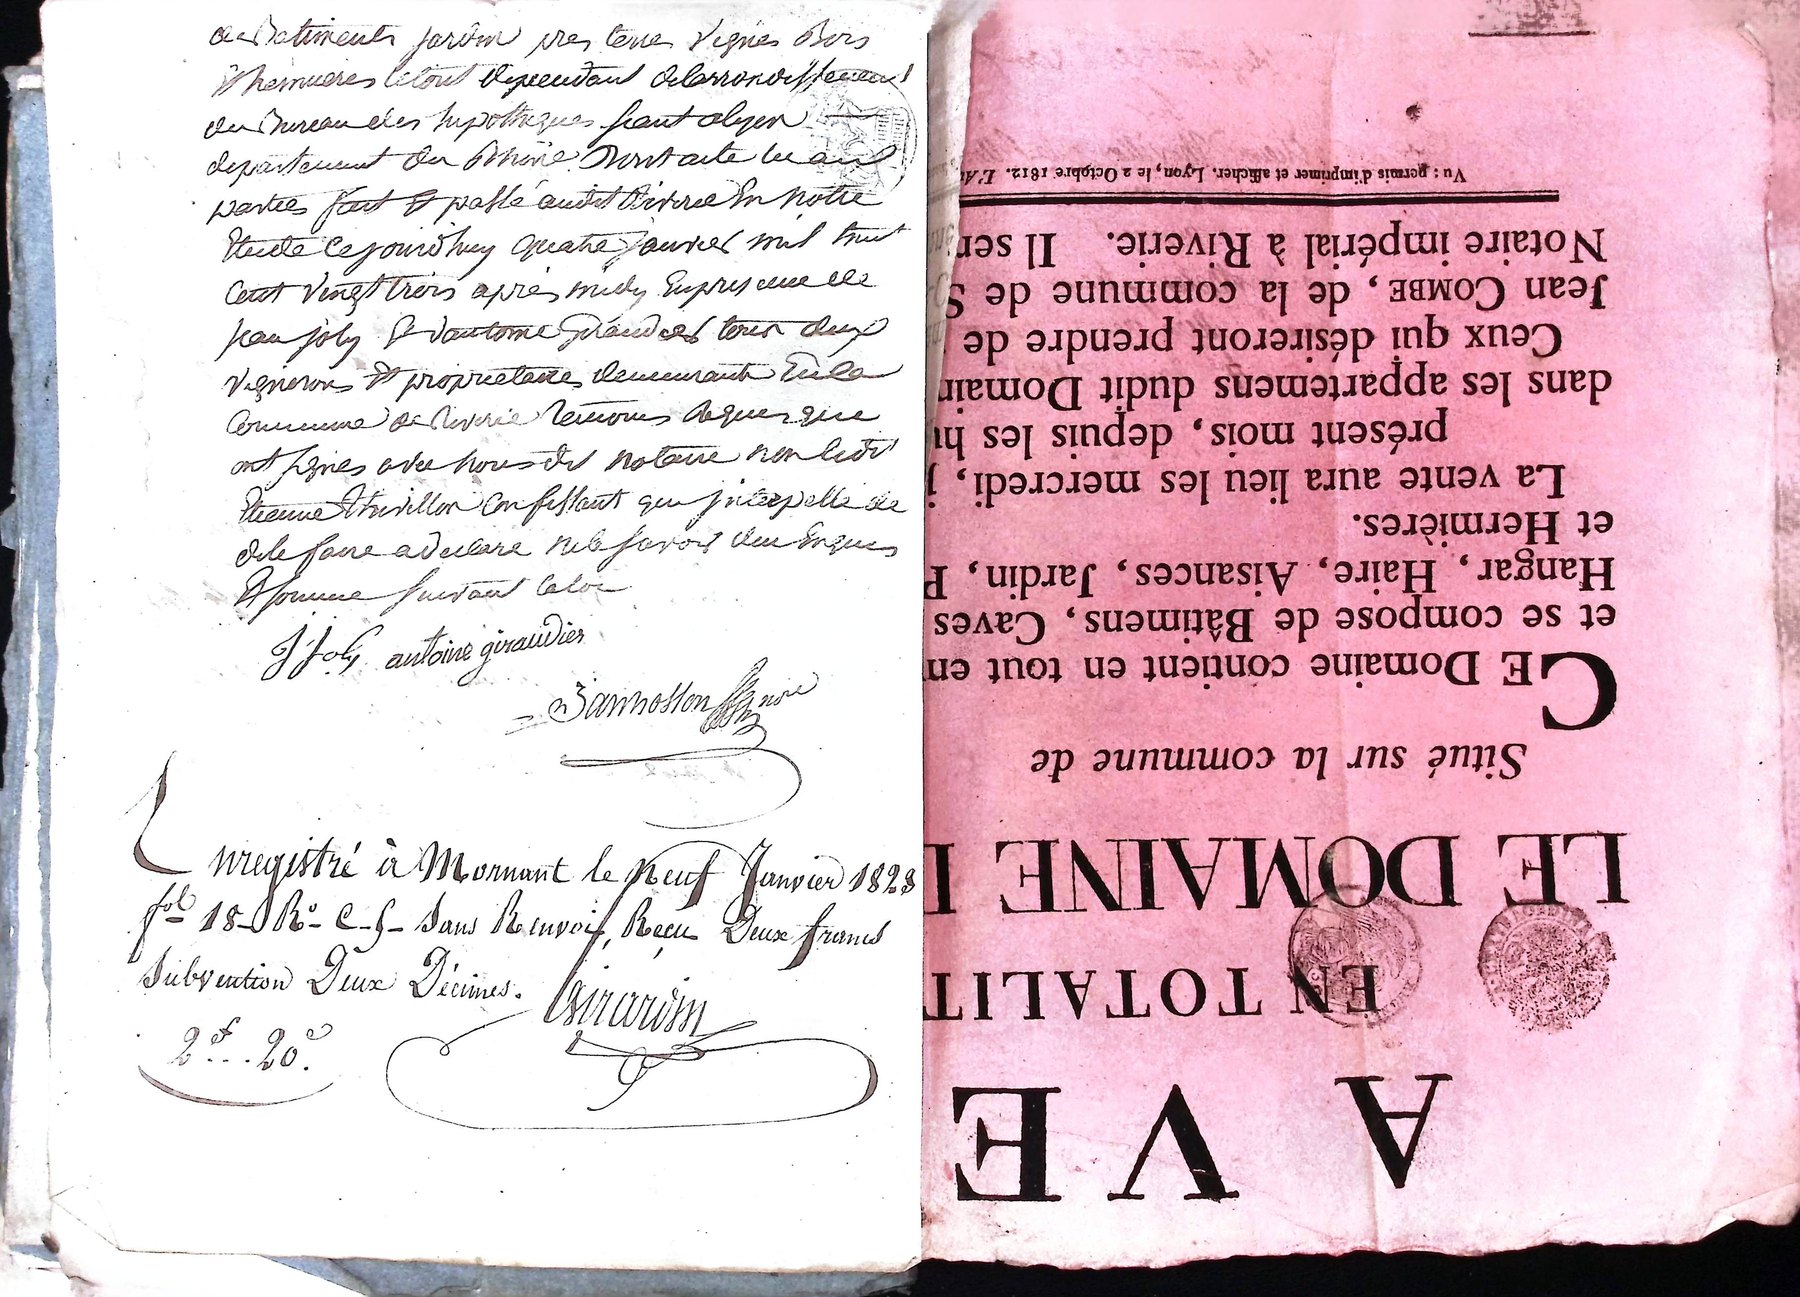 de Batiments jardin pres terre vignes Bois
& hermieres le tout dependant de larrondissement
du Bureau des hipotheques seant alyon
departement du Rhône Dont acte lu aux
parties fait & passé audit Riverie En notre
Etude Cejourdhuy quatre janvier mil huit
Cent vingt trois après midy En presence de
jean joly & dantoine Giraudier tous deux
vignerons & proprietaires demeurants En la
Commune de Riverie temoins requis qui
ont signés avec nous dit notaire non ledit
Etienne Thivillon Confessant qui interpellé de
de le faire a declaré ne le savoir de ce Enquis
& somme suivant la loi
J Joly antoine giraudier
Jannosson nre
Enregistré à Mornant le neuf Janvier 1823
fol 18 Ro C. 5 Sans Renvoi, Reçu Deux francs
Subvention Deux Décimes.
Girardin
2f... 20c.
A VE
EN TOTALIT
LE DOMAINE D
Situé sur la commune de
CE Domaine contient en tout en
et se compose de Bâtimens, Caves
Hangar, Haire, Aisances, Jardin, P
et Hermières.
La vente aura lieu les mercredi, j
présent mois, depuis les hu
dans les appartemens dudit Domain
Ceux qui désireront prendre de
Jean COMBE, de la commune de S
Notaire impérial à Riverie. Il ser
Vu : permis d'imprimer et afficher. Lyon, le 2 Octobre 1812. L'A